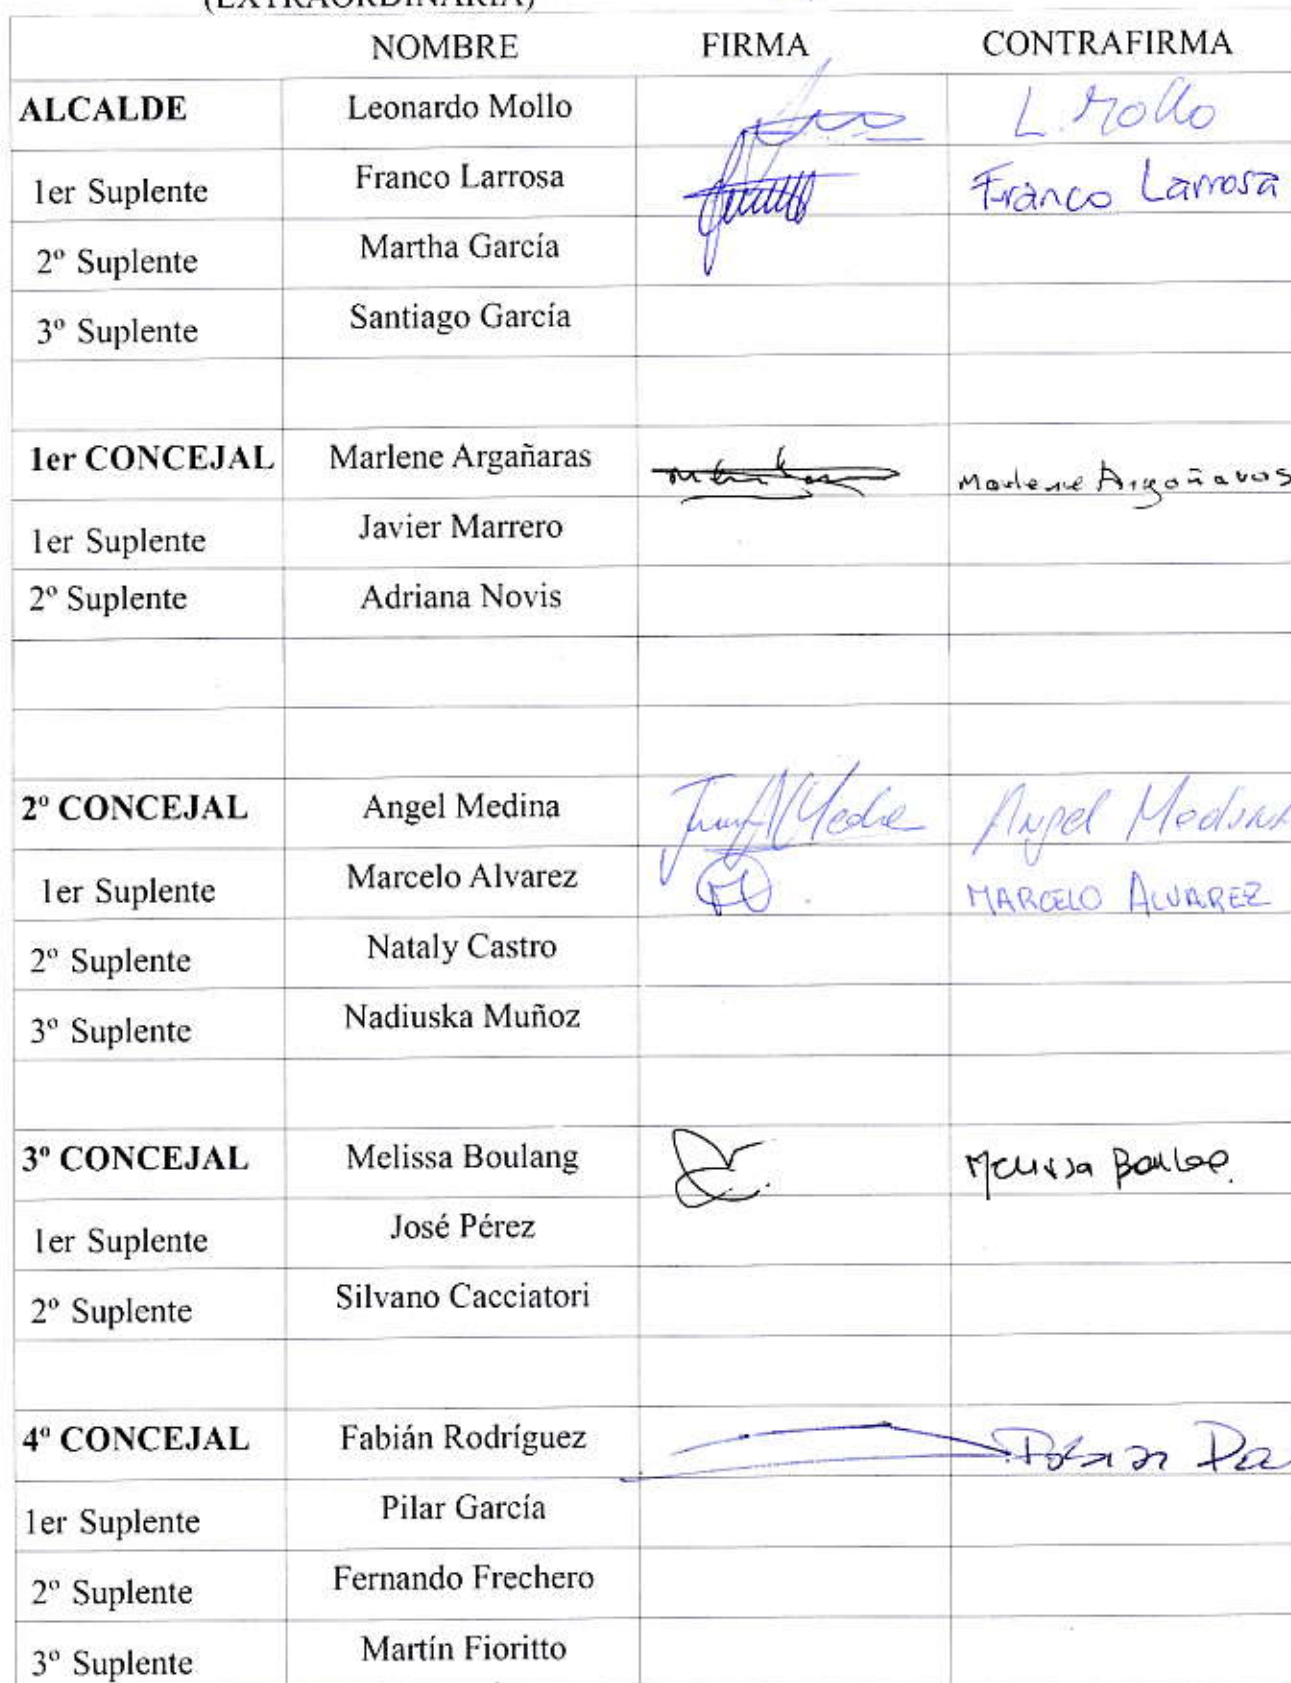 (EXTRAORDINARIA)
NOMBRE FIRMA CONTRAFIRMA
ALCALDE Leonardo Mollo L. Mollo
1er Suplente Franco Larrosa Franco Larrosa
2º Suplente Martha García
3º Suplente Santiago García
1er CONCEJAL Marlene Argañaras Marlene Argañaras
1er Suplente Javier Marrero
2º Suplente Adriana Novis
2º CONCEJAL Angel Medina Angel Medina
1er Suplente Marcelo Alvarez MARCELO ALVAREZ
2º Suplente Nataly Castro
3º Suplente Nadiuska Muñoz
3º CONCEJAL Melissa Boulang Melissa
1er Suplente José Pérez
2º Suplente Silvano Cacciatori
4º CONCEJAL Fabián Rodríguez
1er Suplente Pilar García
2º Suplente Fernando Frechero
3º Suplente Martín Fioritto